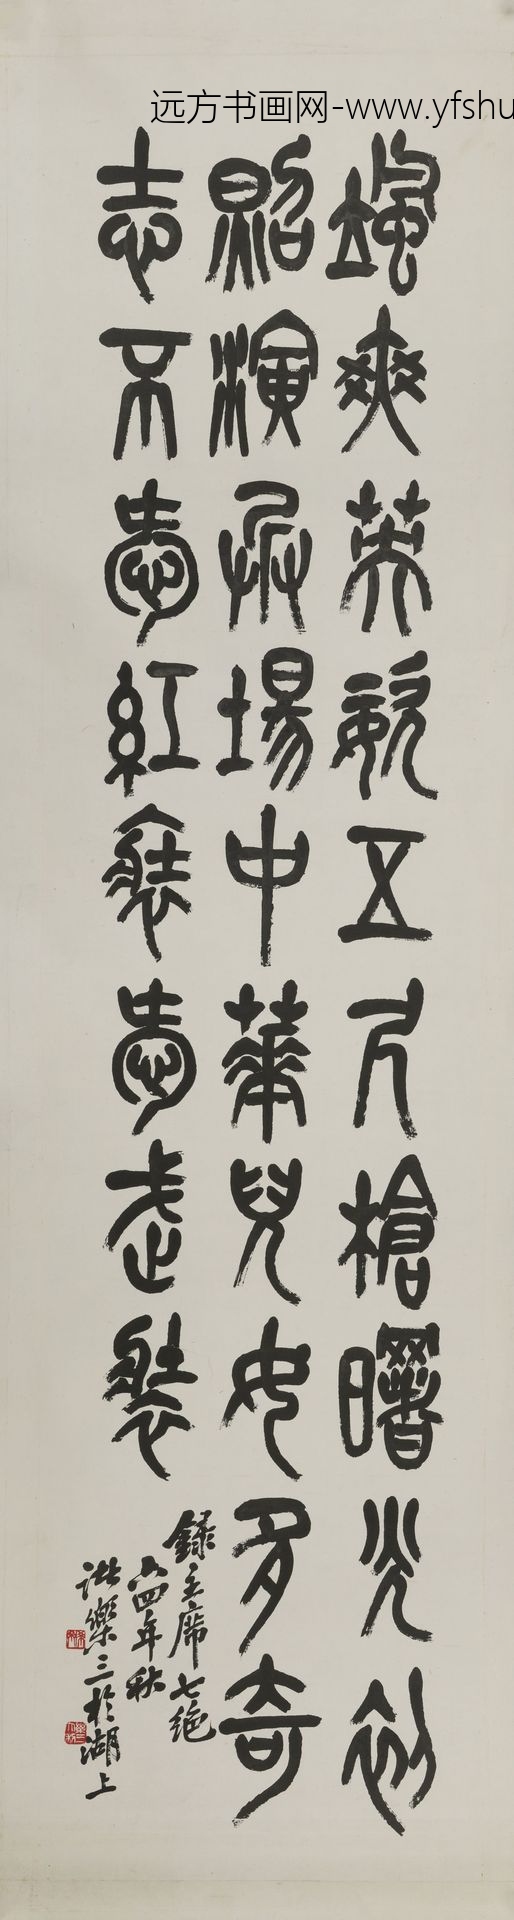 远方书画网-www.yfshu
颯爽英姿五尺槍曙光初
照演兵場中華兒女多奇
志不愛紅裝愛武裝
錄主席七絕
六四年秋
諸樂三於湖上